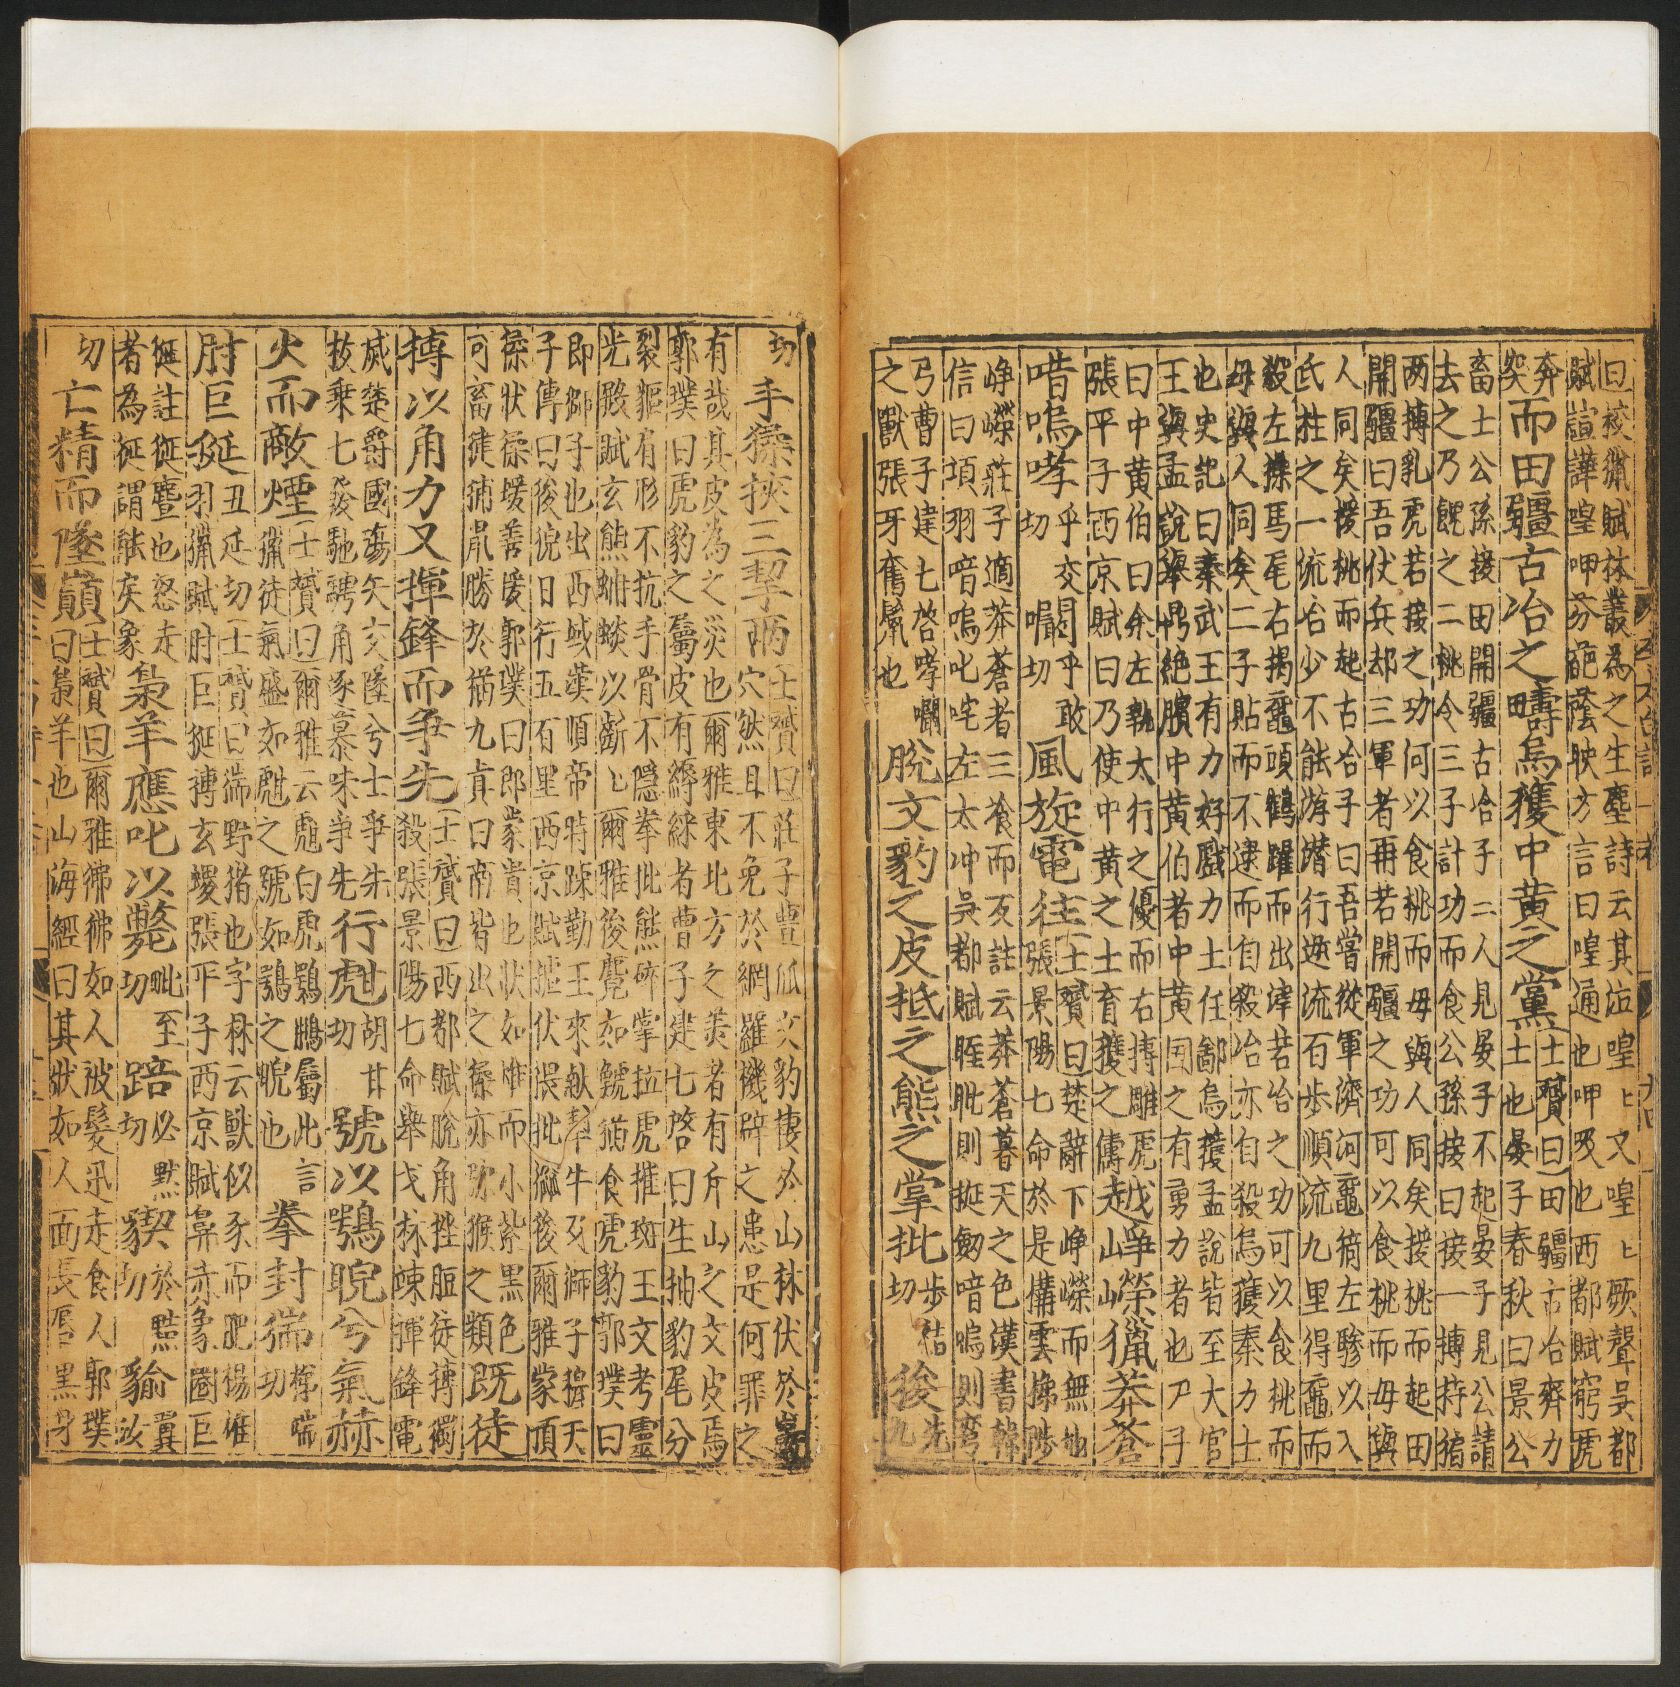 曰校獵賦林叢為之生塵詩云其泣喤〻又喤〻厥聲吳都
賦諠譁喤呷芬葩蔭映方言曰喤通也呷吸也西都賦窮虎
奔突而田疆古冶之疇烏獲中黃之黨士贇曰田疆古冶齊力
士也晏子春秋曰景公
畜士公孫接田開疆古冶子二人見晏子不起晏子見公請
去之乃餽之二桃令三子計功而食公孫接曰接一搏特猏
両搏乳虎若接之功何以食桃而毋與人同矣援桃而起田
開疆曰吾伏兵却三軍者再若開疆之功可以食桃而毋與
人同矣援桃而起古冶子曰吾嘗從軍濟河黿銜左驂以入
氏柱之一流冶少不能游潜行逆流百步順流九里得黿而
殺左操馬尾右揭黿頭鶴躍而出津若冶之功可以食桃而
毋與人同矣二子貼而不逮而自殺冶亦自殺烏獲秦力士
也史記曰秦武王有力好戲力士任鄙烏獲孟說皆至大官
王與孟說舉鼎絕臏中黃伯者中黃国之有勇力者也尸子
曰中黃伯曰余左執太行之優而右搏雕虎
張平子西京賦曰乃使中黃之士育獲之儔越崢嶸獵莽蒼
喑嗚哮乎交切嚼乎敢切風旋電往士贇曰楚辭下崢嶸而無地
張景陽七命於是搆雲梯陟
崢嶸莊子適莽蒼者三飡而反註云莽蒼暮天之色漢書韓
信曰項羽喑嗚叱咤左太冲吳都賦睚眦則挺劔喑嗚則彎
弓曹子達七啓哮嚼
之獸張牙奮鬣也脫文豹之皮抵之熊之掌批步結切狻先九
切手猱挾三挈両士贇曰莊子豐狐文豹棲於山林伏於巖
穴然且不免於網羅機辟之患是何罪之
有哉其皮為之災也爾雅東北方之美者有斥山之文皮焉
郭璞曰虎豹之屬皮有縟綵者曹子建七啓曰生抽豹尾分
裂貙有形不抗手骨不隱拳批熊碎掌拉虎摧斑王文考靈
光殿賦玄熊蚺蛟以齗〻爾雅狻麑如虦猫食虎豹郭璞曰
即獅子也出西域漢順帝時踈勒王來献犎牛及獅子穆天
子傳曰狻猊日行五百里西京賦摣伏猥批獅狻爾雅蒙頌
猱狀猱猨善援郭璞曰郎蒙貴也狀如蜼而小紫黑色
可畜徤捕鼠勝於猫九真日南皆出之猱亦猕猴之類既徒
搏以角力又揮鋒而爭先士贇曰西都賦脫角挫脰徒搏獨
殺張景陽七命舉戈林竦揮鋒電
威楚爵國殤矢交墜兮士爭先
枚乗七發馳騁角逐慕味爭先行甝胡甘切號以鶚睨兮氣赫
火而敵煙士贇曰爾雅云甝白虎鶚鵰屬此言
獵徒氣盛如甝之號如鶚之睨也拳封猯梯喘切
肘巨狿丑延切士贇曰猯野猪也字林云獸似豕而肥楊雄
羽獵賦肘巨狿搏玄蝯張平子西京賦鼻赤象圈巨
狿註狿麈也怒走
者為狿謂能矣象梟羊應叱以斃毗至切踣必黙切猰於黠切貐翼汝
切亡精而墜巔士贇曰爾雅狒狒如人被髮迅走食人郭璞
曰梟羊也山海經曰其狀如人面長唇黑身